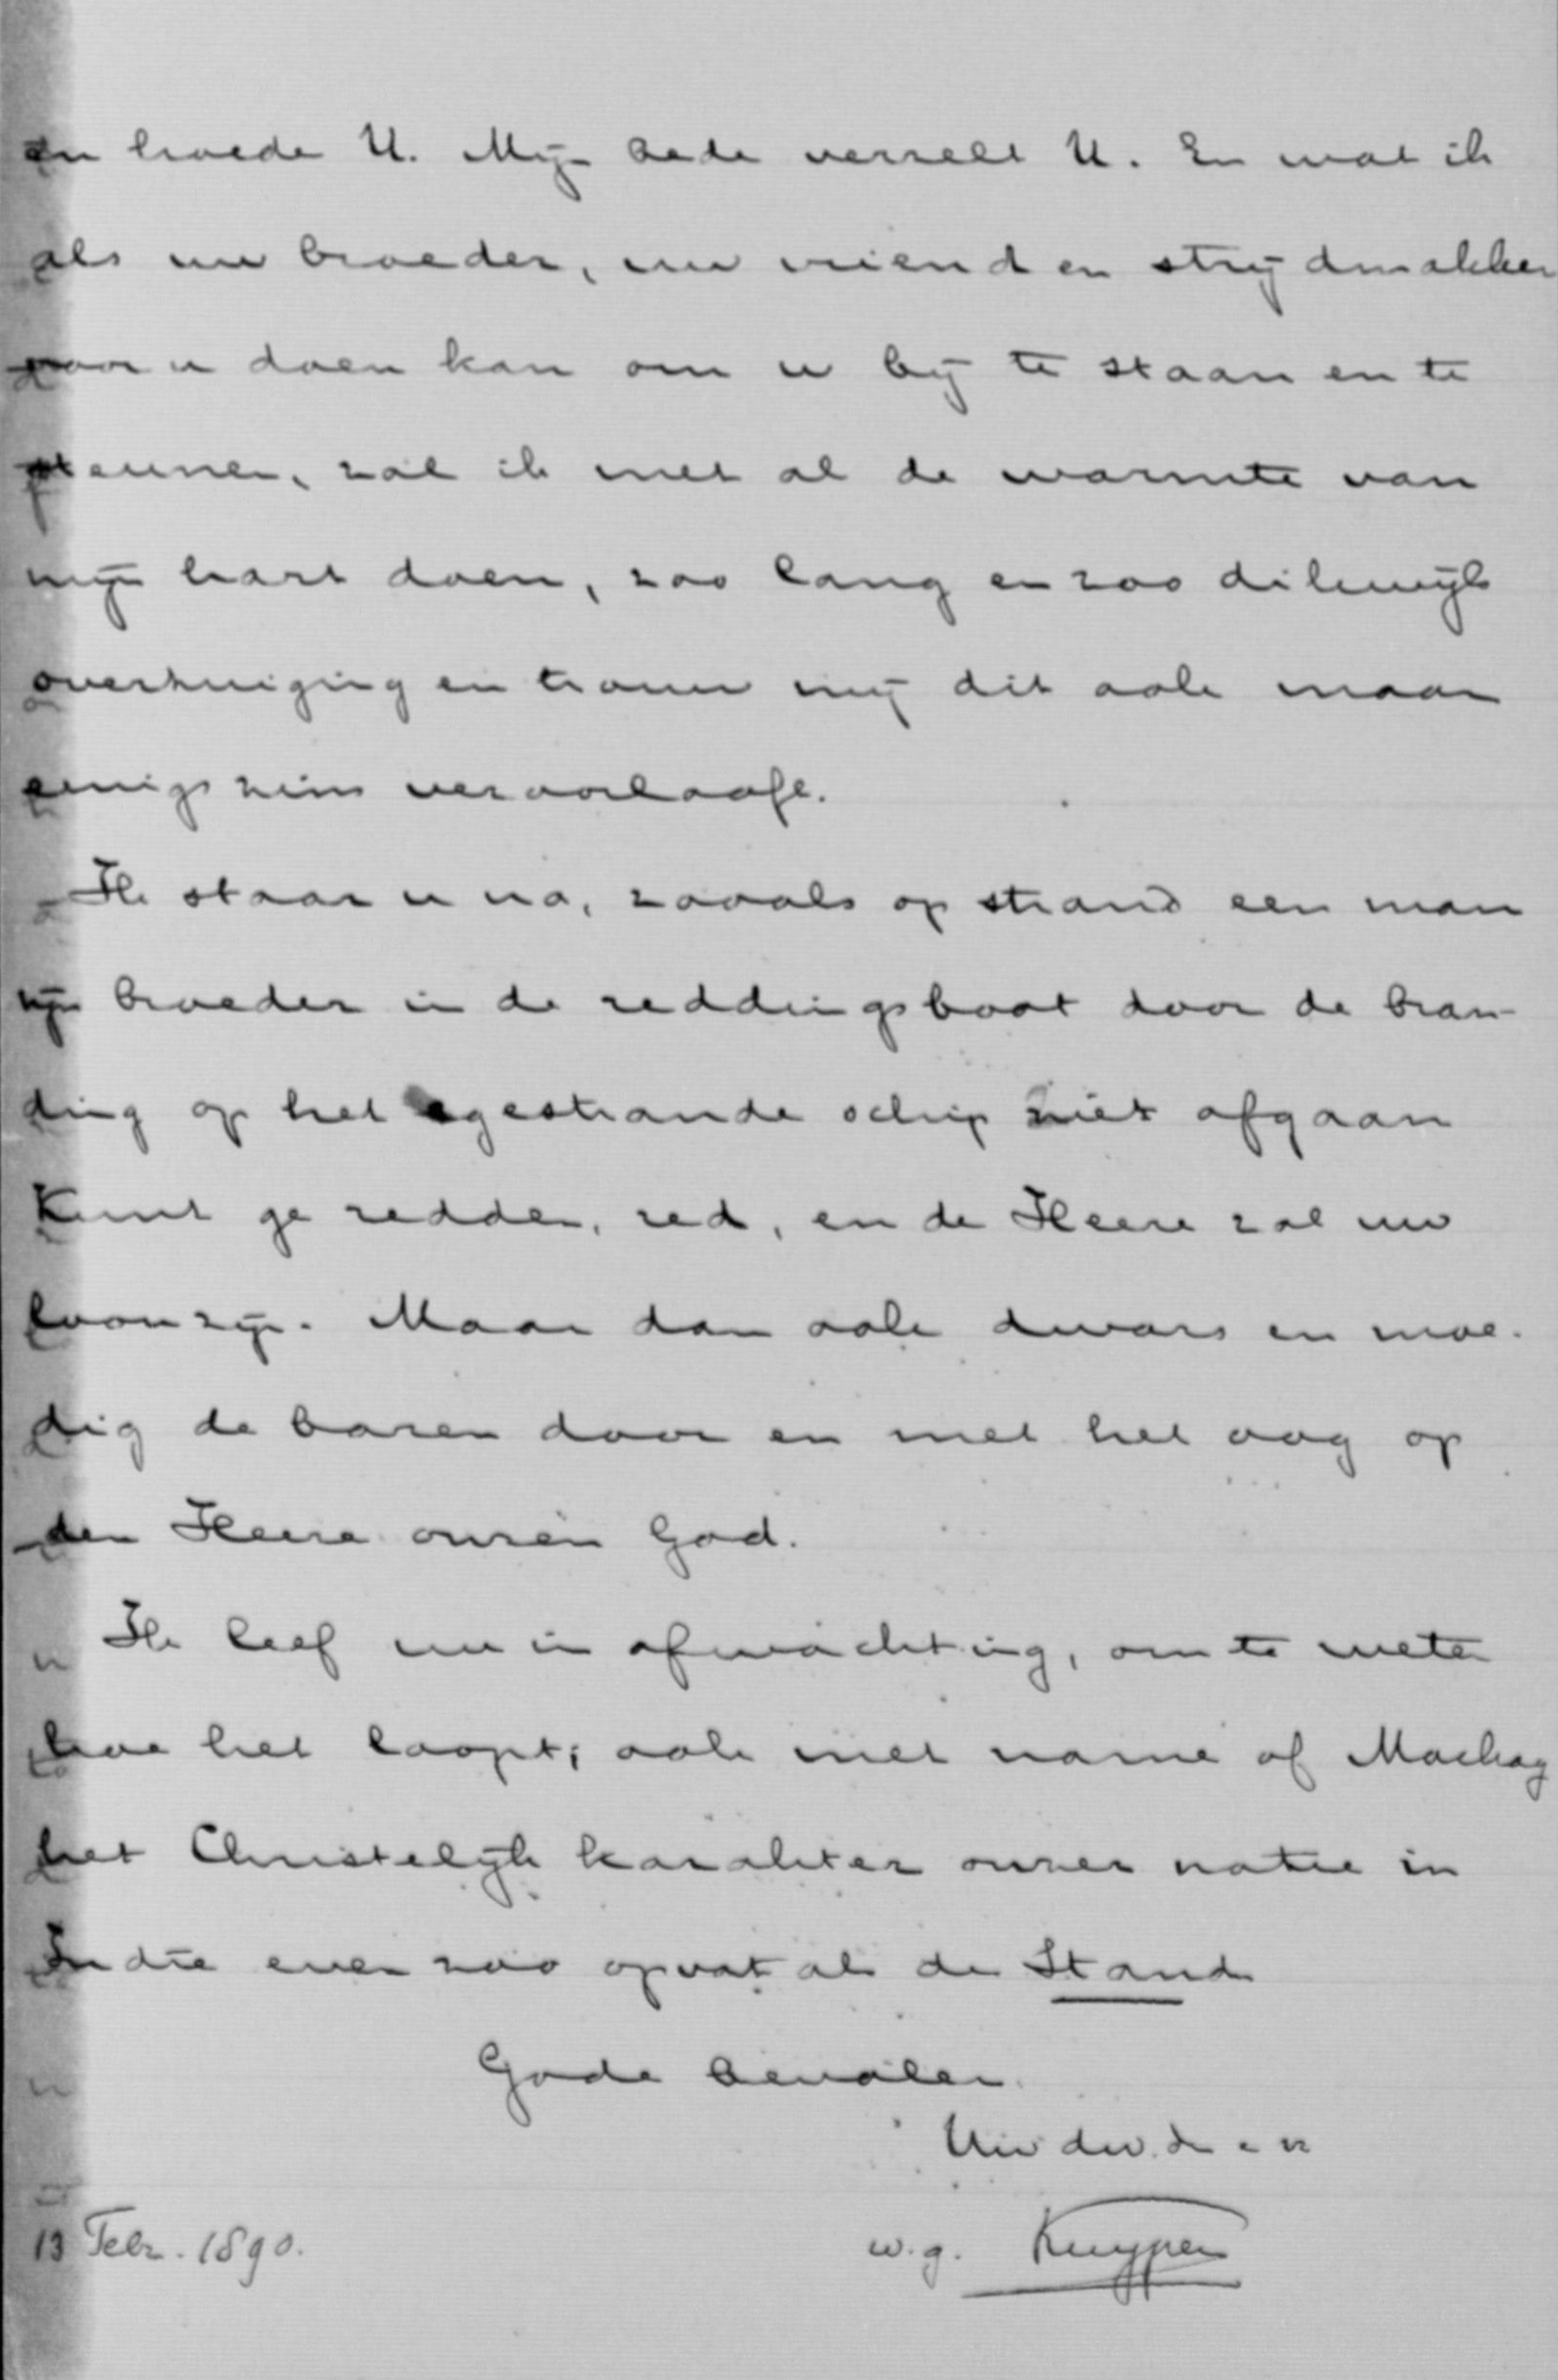 en hoede U. Mijn bede verzelt U. En wat ik
als uw broeder, uw vriend en strijdmakker
voor u doen kan om u bij te staan en te
steunen, zal ik met al de warmte van
mijn hart doen, zoo lang en zoo dikwijls
overtuiging en trouw mij dit ook maar
eenigszins veroorlooft.
Ik staar u na, zooals op strand een man
zijn broeder in de reddingsboot door de bran-
ding op het gestrande schip ziet afgaan
Kunt ge redden, red, en de Heere zal uw
loon zijn. Maar dan ook dwars en moe-
dig de baren door en met het oog op
den Heere onzen God.
Ik leef nu in afwachting, om te weten
hoe het loopt; ook met name of Mackay
het Christelijk karakter onzer natie in
Indië even zoo opvat als de Stand
Gode bevolen.
Uw dw. dr en vr
13 Febr. 1890.
w.g. Kuyper